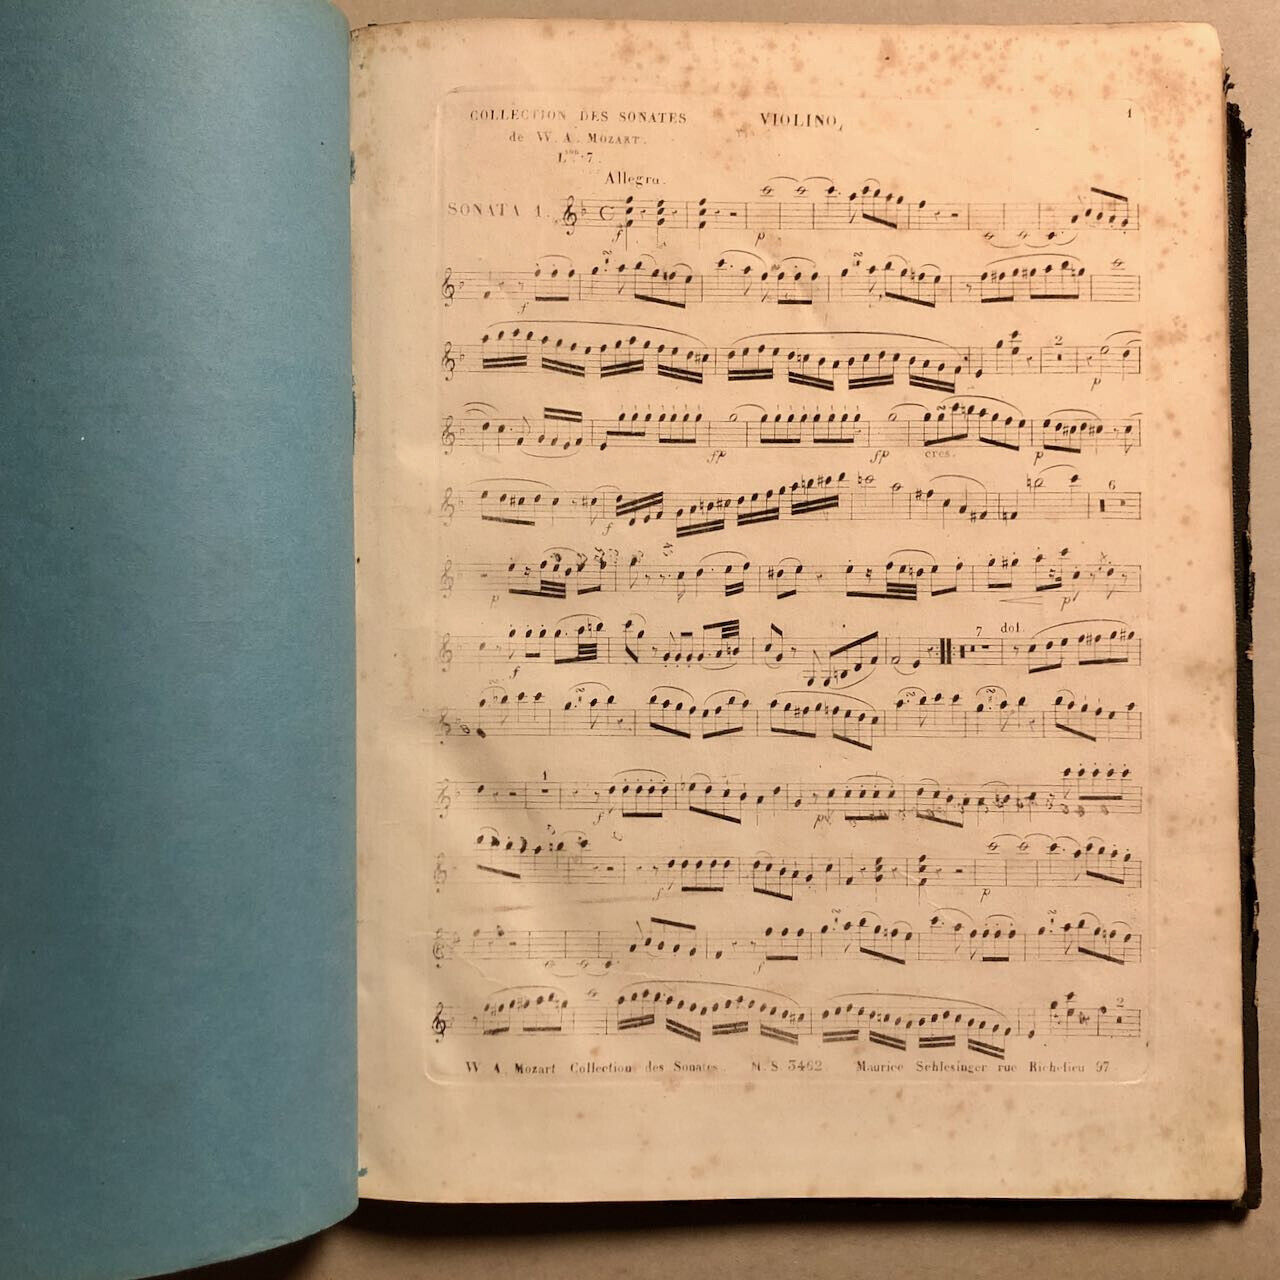 COLLECTION DES SONATES VIOLINO. 1
de W. A. MOZART.
L.son 7.
Allegro.
SONATA 1.
f p
f
2
p
fp fp cres. p
f 6
p p
f 7 dol.
1
f p
f p
f
2
W A. Mozart Collection des Sonates. M.S. 3462. Maurice Schlesinger rue Richelieu 97.